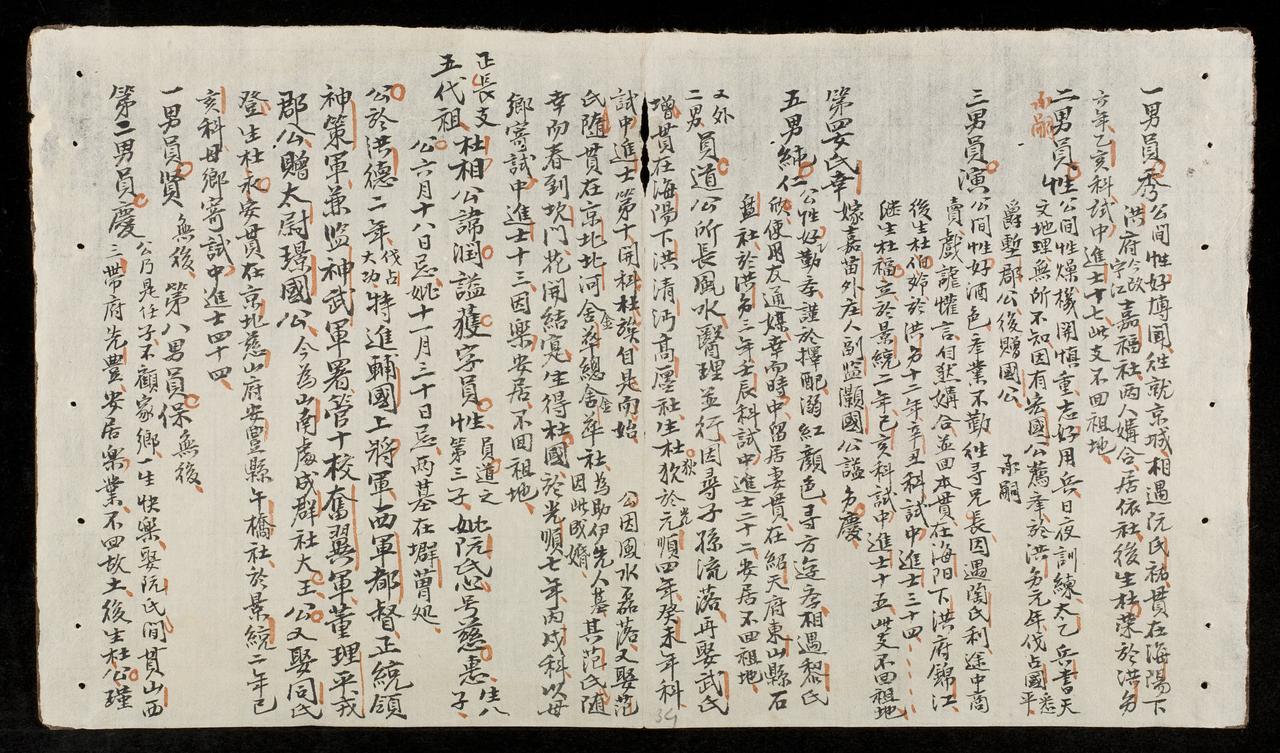 一男員秀公間性好博聞往就京城相遇阮氏祐貫在海陽下
洪府今改寧江嘉福社兩人媾合居依社後生杜榮於洪
六年乙亥科試中進士十七此支不回祖地
二男員性公間性燥機關慎重志好用兵日夜訓練太乙兵書天
文地理無所不知因有宏國公薦奉於洪元年伐占國平
爵塹郡公後贈國公
承嗣
三男員演公間性好酒色產業不勤往尋兄長因遇蘭氏利途中商
賣戲謔懽言付媾合並回本貫在海陽下洪府錦江
後生杜伯於洪十二年辛丑科試中進士三十四
継生杜福立於景統二年己亥科試中進士十五此支不回祖地
第四女氏幸嫁嘉苗外庄人副監灝國公謚慶
五男純仁公性好勤孝謹於擇配溺紅顏色尋方相遇黎氏
欣便用友通媒幸而時中留居妻貫在紹天府東山縣石
社於洪三年壬辰科試中進士二十二安居不回祖地
又外
二男員道公所長風水醫理並行因尋子孫流落再娶武氏
增貫在海陽下洪清沔高社生杜於光順四年癸未年科
試中進士第十開科杜族自是而始
公因風水磊落又娶范
氏隨貫在京北北河舍總舍社為助伊先人基其范氏隨
因此成婚
幸而春到坎門花開結寔生得杜國於光順七年丙戌科以母
鄉寄試中進士十三因樂安居不回祖地
正長支
五代祖杜相公諱潤謚獲字員性員道之第三子妣阮氏心号慈惠生八子
公六月十八日忌妣十一月三十日忌兩基在塘曹処
公於洪德二年伐占大功特進輔國上將軍西軍都督正統領
神策軍兼监神武軍署管十校奮翼軍董理平戎
郡公贈太尉璟國公今為山南處成群社大王公又娶同氏
登生杜永安貫在京北慈山府安豊縣午橋社於景統二年己
亥科母鄉寄試中進士四十四
一男員賢無後第八男員保無後
第二男員慶公乃是任子不顧家鄉一生快樂娶阮氏間貫山西
三帶府先豊安居樂業不回故土後生杜公瑾
34